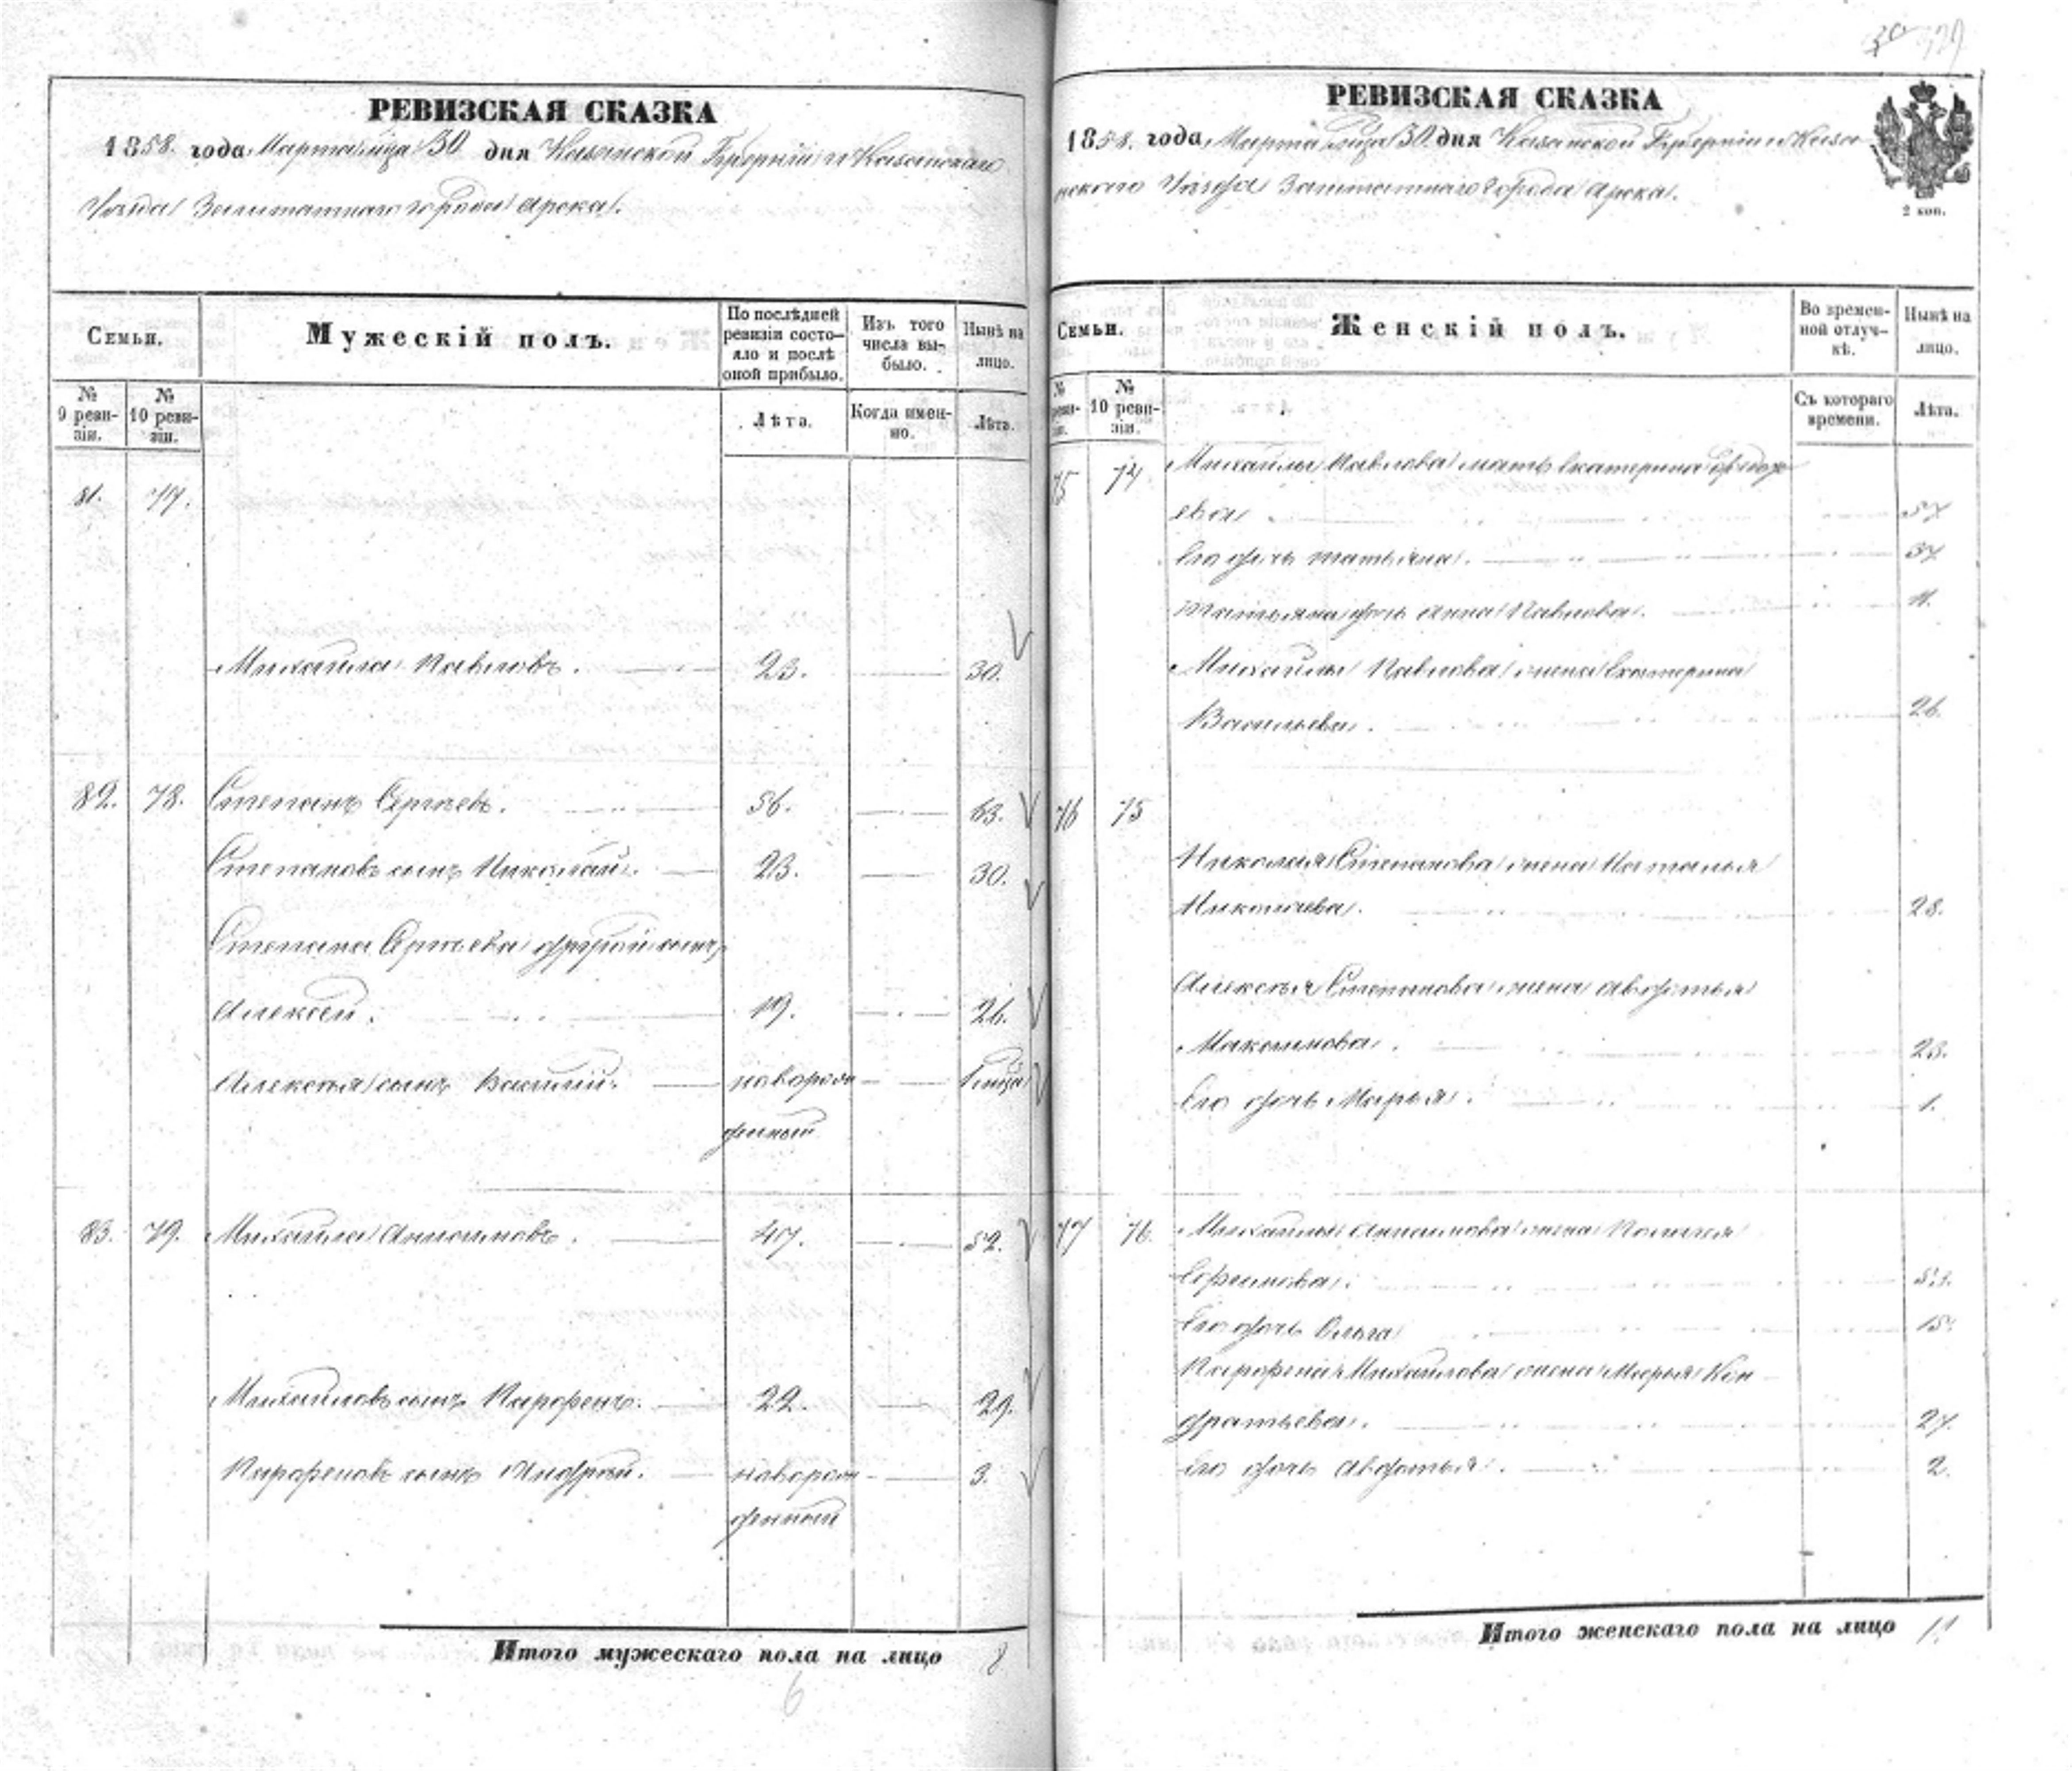 329
РЕВИЗСКАЯ СКАЗКА
1858. года Марта м̃ца 30 дня Казанской Губерніи и Казанскаго
Уезда Заштатнаго города Арска.
Семьи.
Мужескій полъ.
По послѣдней ревизіи состояло и послѣ оной прибыло.
Изъ того числа выбыло.
Нынѣ на лицо.
№ 9 ревизіи.
№ 10 ревизіи.
Лѣта.
Когда именно.
Лѣта.
81. 77.
Михаила Павловъ. 23. 30.
82. 78. Степанъ Сергѣевъ. 56. 63.
Степановъ сынъ Николай. 23. 30.
Степана Сергѣева другой сынъ
Алексей. 19. 26.
Алексея сынъ Василій. новорож
денный
83. 79. Михаила Антоновъ. 47. 52.
Михайловъ сынъ Парфенъ. 22. 29.
Парфеновъ сынъ Андрей. новорож 3.
денный
Итого мужескаго пола на лицо 8
6
РЕВИЗСКАЯ СКАЗКА
1858. года Марта м̃ца 30 дня Казанской Губерніи и Каза
нскаго Уезда Заштатнаго города Арска.
2 коп.
Семьи.
Женскій полъ.
Во временной отлучкѣ.
Нынѣ на лицо.
№ ревизіи.
№ 10 ревизіи.
Съ котораго времени.
Лѣта.
75 74 Михайлы Павлова мать Екатерина Федор
ева 57
Его дочь Татьяна. 37
Татьяна дочь Анна Павлова. 11.
Михайлы Павлова жена Екатерина
Васильева. 26.
76 75
Николая Степанова жена Наталья
Николаева. 28.
Алексея Степанова жена Авдотья
Максимова. 23.
Его дочь Марья. 1.
77 76. Михайлы жена Пелагея
Ефимова. 53.
Его дочь Ольга 15.
Парфена Михайлова жена Марья Кон
дратьева. 27.
Его дочь Авдотья. 2.
Итого женскаго пола на лицо 11